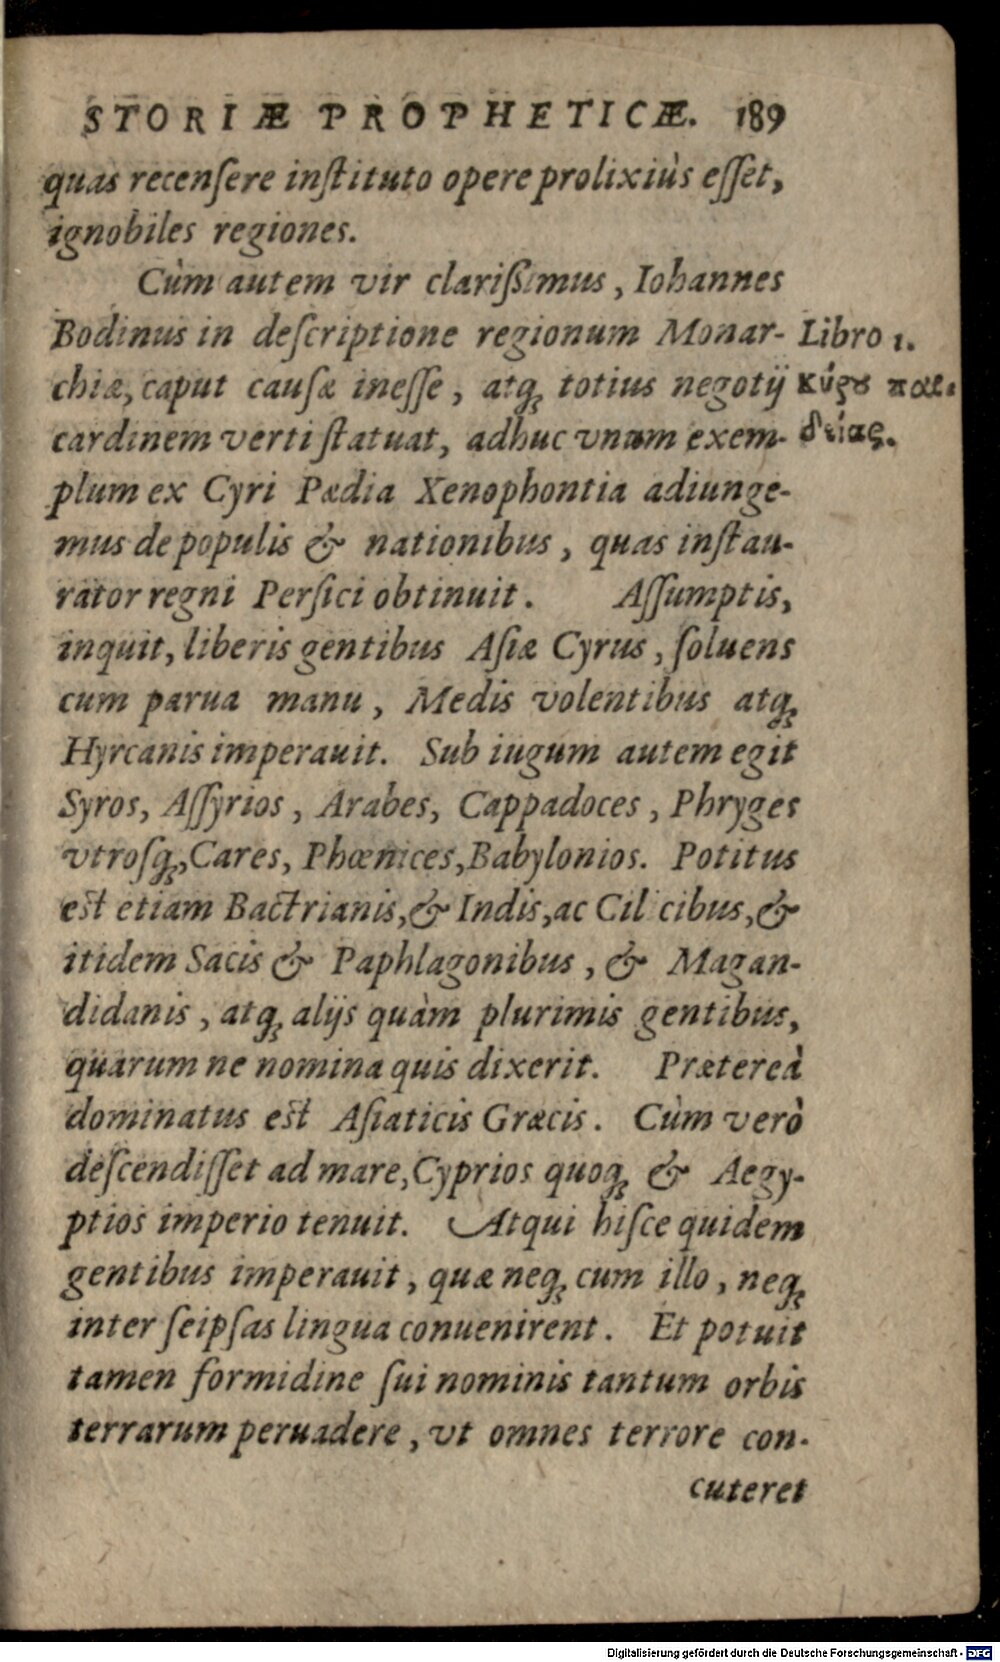 STORIÆ PROPHETICÆ. 189
quas recenſere inſtituto opere prolixiùs eſſet,
ignobiles regiones.
Cùm autem vir clarißimus, Iohannes
Bodinus in deſcriptione regionum Monar-
chiæ, caput cauſæ ineſſe, atq; totius negotij
cardinem verti ſtatuat, adhuc vnum exem-
plum ex Cyri Pædia Xenophontia adiunge-
mus de populis & nationibus, quas inſtau-
rator regni Perſici obtinuit. Aſſumptis,
inquit, liberis gentibus Aſiæ Cyrus, ſoluens
cum parua manu, Medis volentibus atq;
Hyrcanis imperauit. Sub iugum autem egit
Syros, Aſſyrios, Arabes, Cappadoces, Phryges
vtroſq;, Cares, Phœnices, Babylonios. Potitus
eſt etiam Bactrianis, & Indis, ac Cil cibus, &
itidem Sacis & Paphlagonibus, & Magan-
didanis, atq; alijs quàm plurimis gentibus,
quarum ne nomina quis dixerit. Prætereà
dominatus eſt Aſiaticis Græcis. Cùm verò
deſcendiſſet ad mare, Cyprios quoq; & Aegy-
ptios imperio tenuit. Atqui hiſce quidem
gentibus imperauit, quæ neq; cum illo, neq;
inter ſeipſas lingua conuenirent. Et potuit
tamen formidine ſui nominis tantum orbis
terrarum peruadere, vt omnes terrore con-
cuteret
Libro 1.
κύρȣ παι-
δείας.
Digitalisierung gefördert durch die Deutsche Forschungsgemeinschaft - DFG